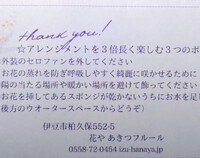 thank you!
☆アレンジメントを３倍長く楽しむ３つのポ
外装のセロファンを外してください
お花の蒸れを防ぎ呼吸しやすく綺麗に咲かせるために
陽の当たる場所や暖かい場所を避けて飾ってください
お花を挿してあるスポンジが乾かないうちにお水を足
後方のウオータースペースからどうぞ）
伊豆市柏久保552-5
花や あきつフルール
0558-72-0454 izu-hanaya.jp